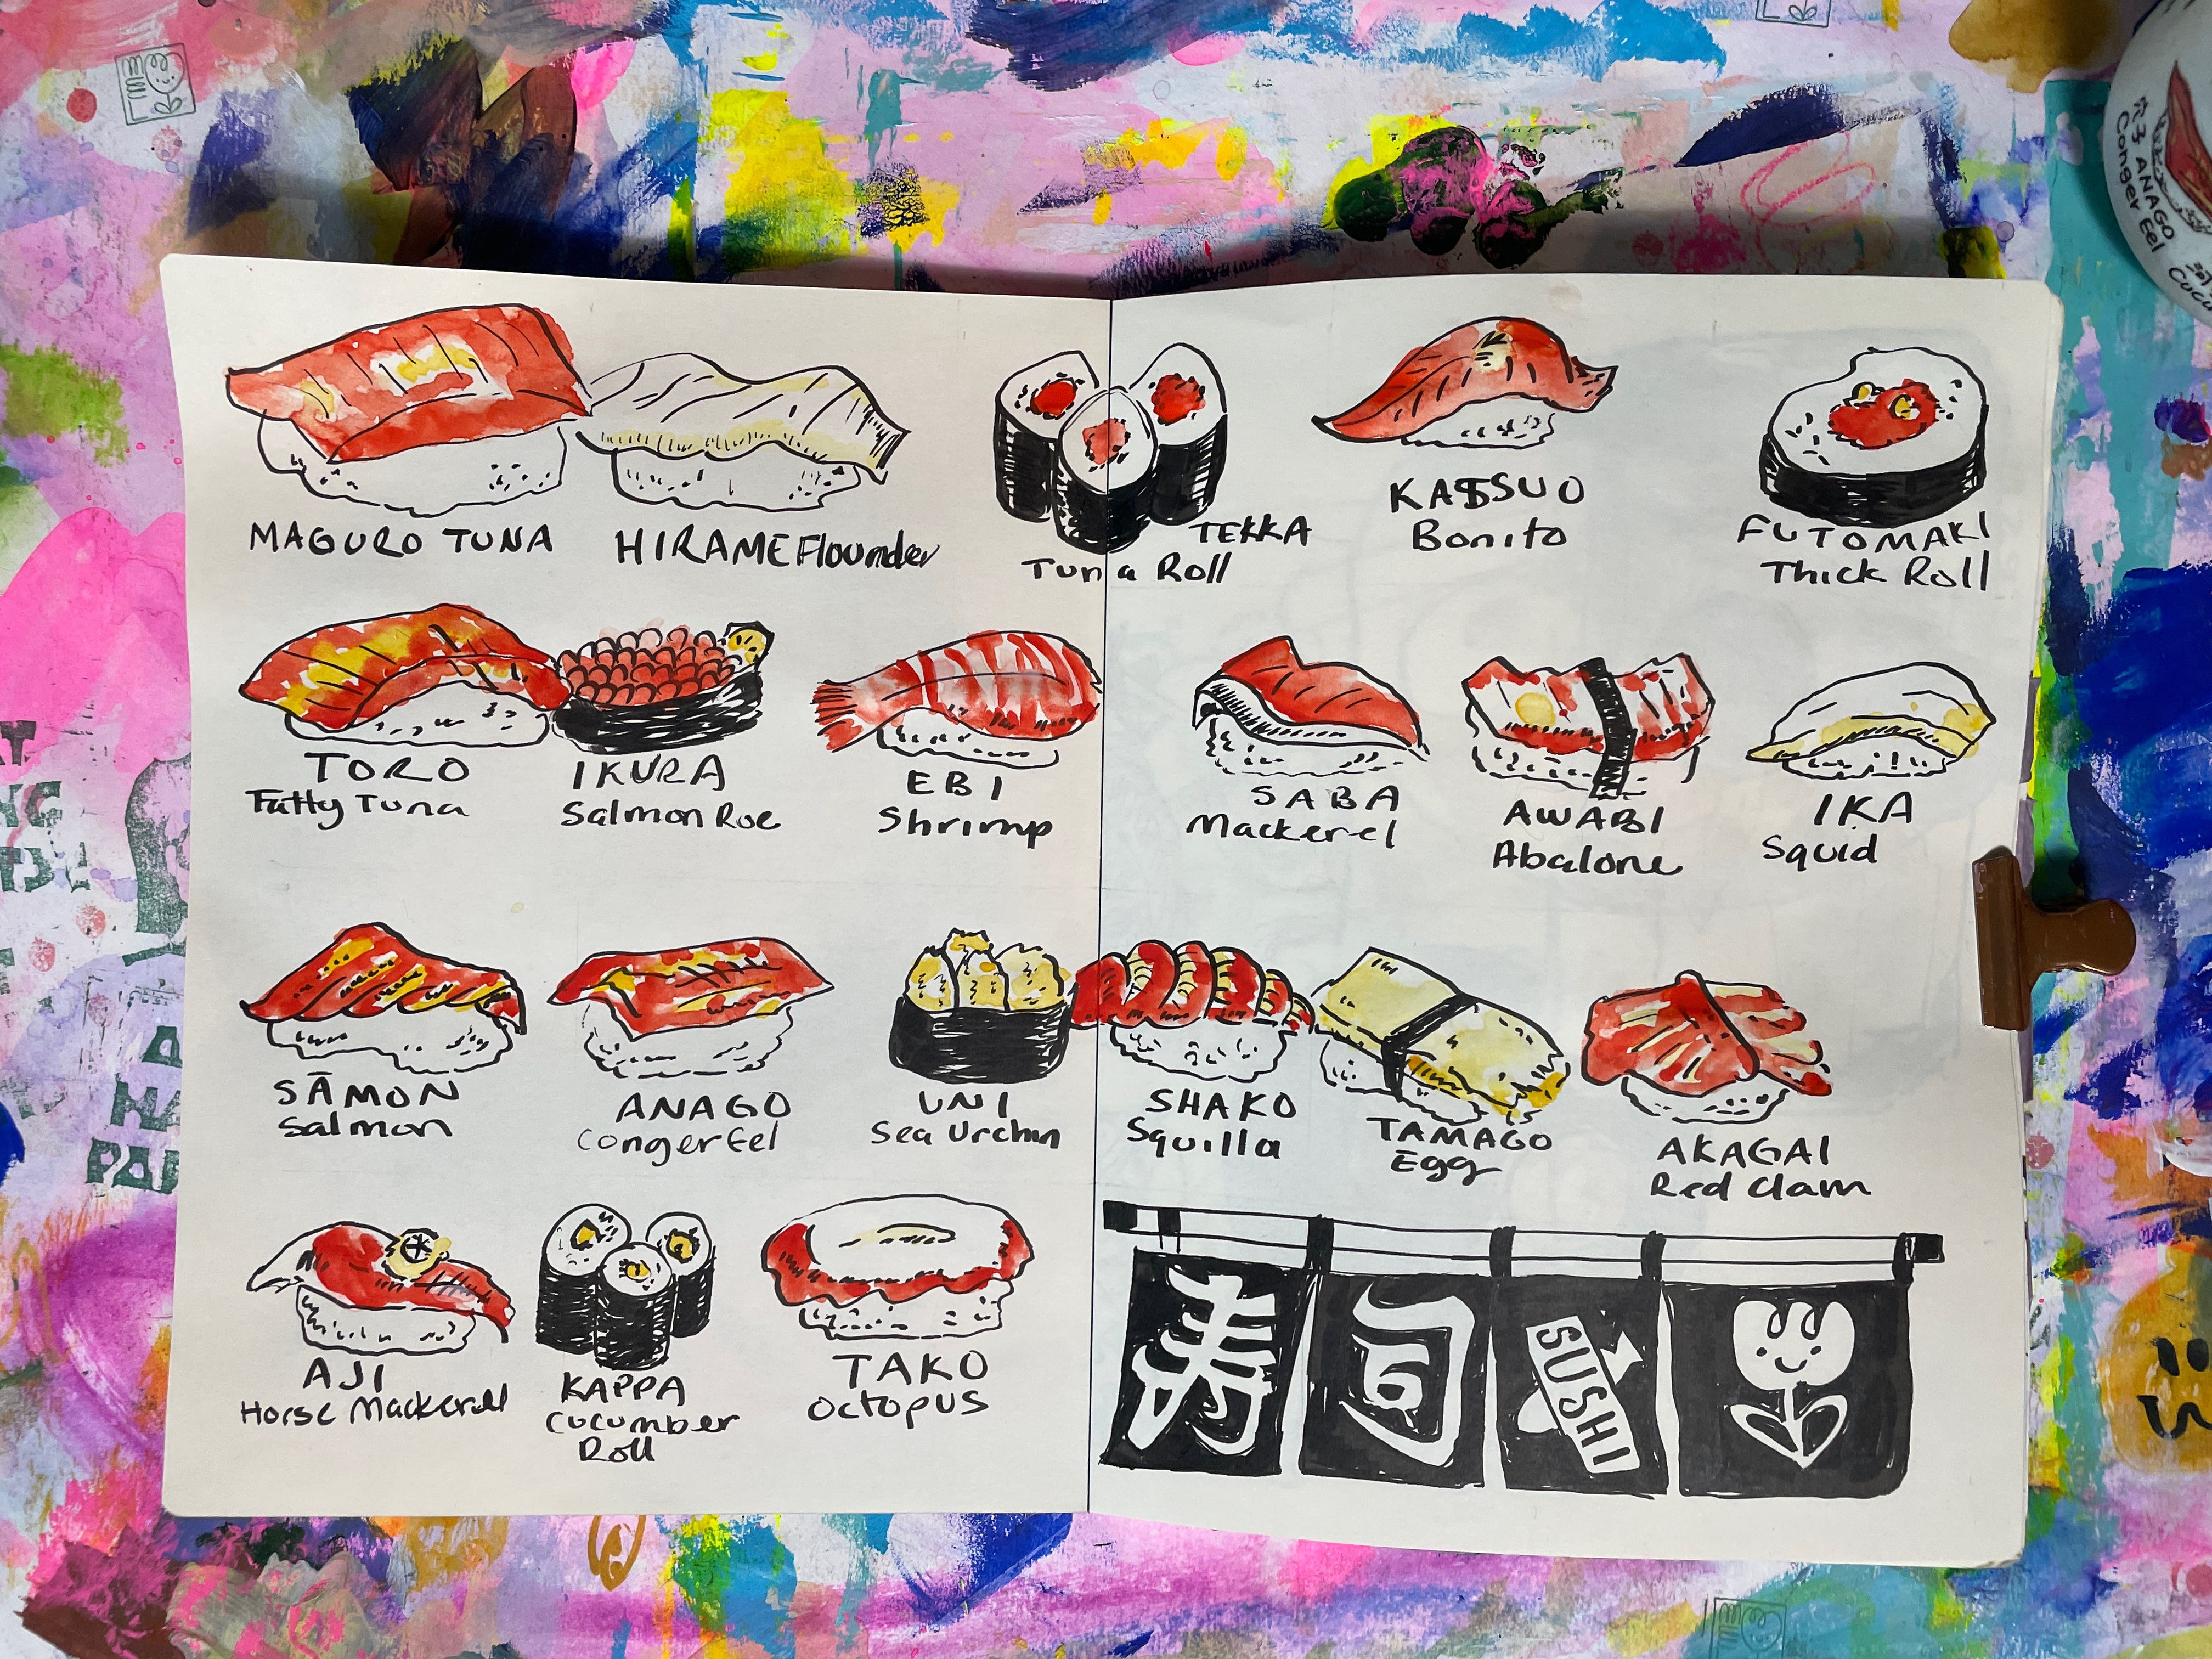 MAGURO TUNA
HIRAME Flounder
TEKKA
Tuna Roll
KATSUO
Bonito
FUTOMAKI
Thick Roll
TORO
Fatty Tuna
IKURA
Salmon Roe
EBI
Shrimp
SABA
Mackerel
AWABI
Abalone
IKA
Squid
SĀMON
Salmon
ANAGO
Conger Eel
UNI
Sea Urchin
SHAKO
Squilla
TAMAGO
Egg
AKAGAI
Red Clam
AJI
Horse Mackerel
KAPPA
Cucumber
Roll
TAKO
Octopus
寿司
SUSHI
穴子 ANAGO
Conger Eel